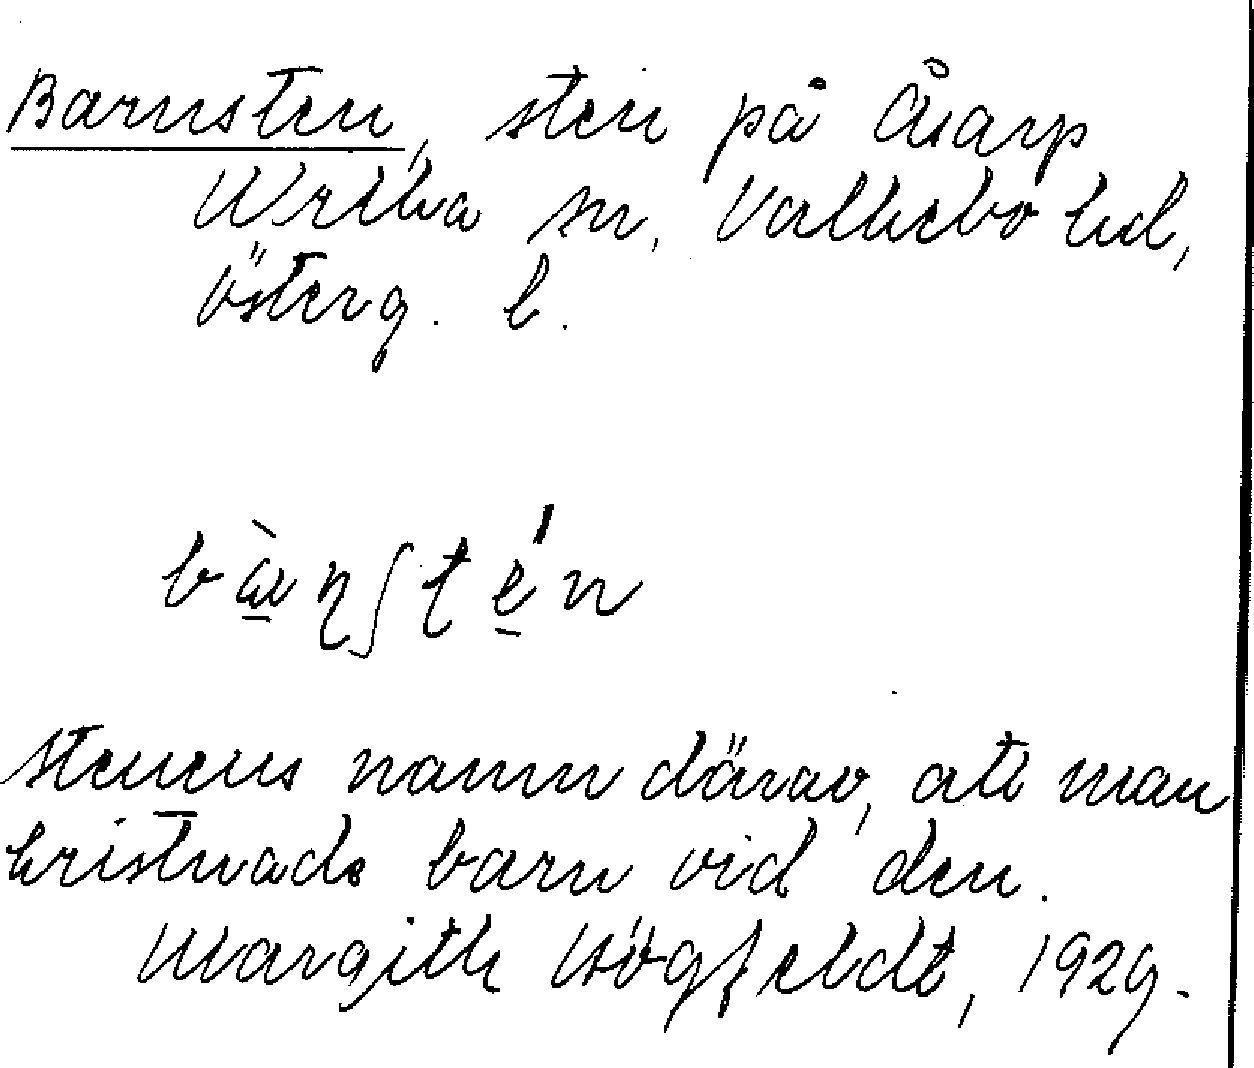 Barnsten, sten på Åsarp
Ulrika sn, Valkebo hd,
Österg. l.
bɑ̱̀ɳʃʈé̱n
Stenens namn därav, att man
kristnade barn vid den.
Margith Högfeldt, 1929.